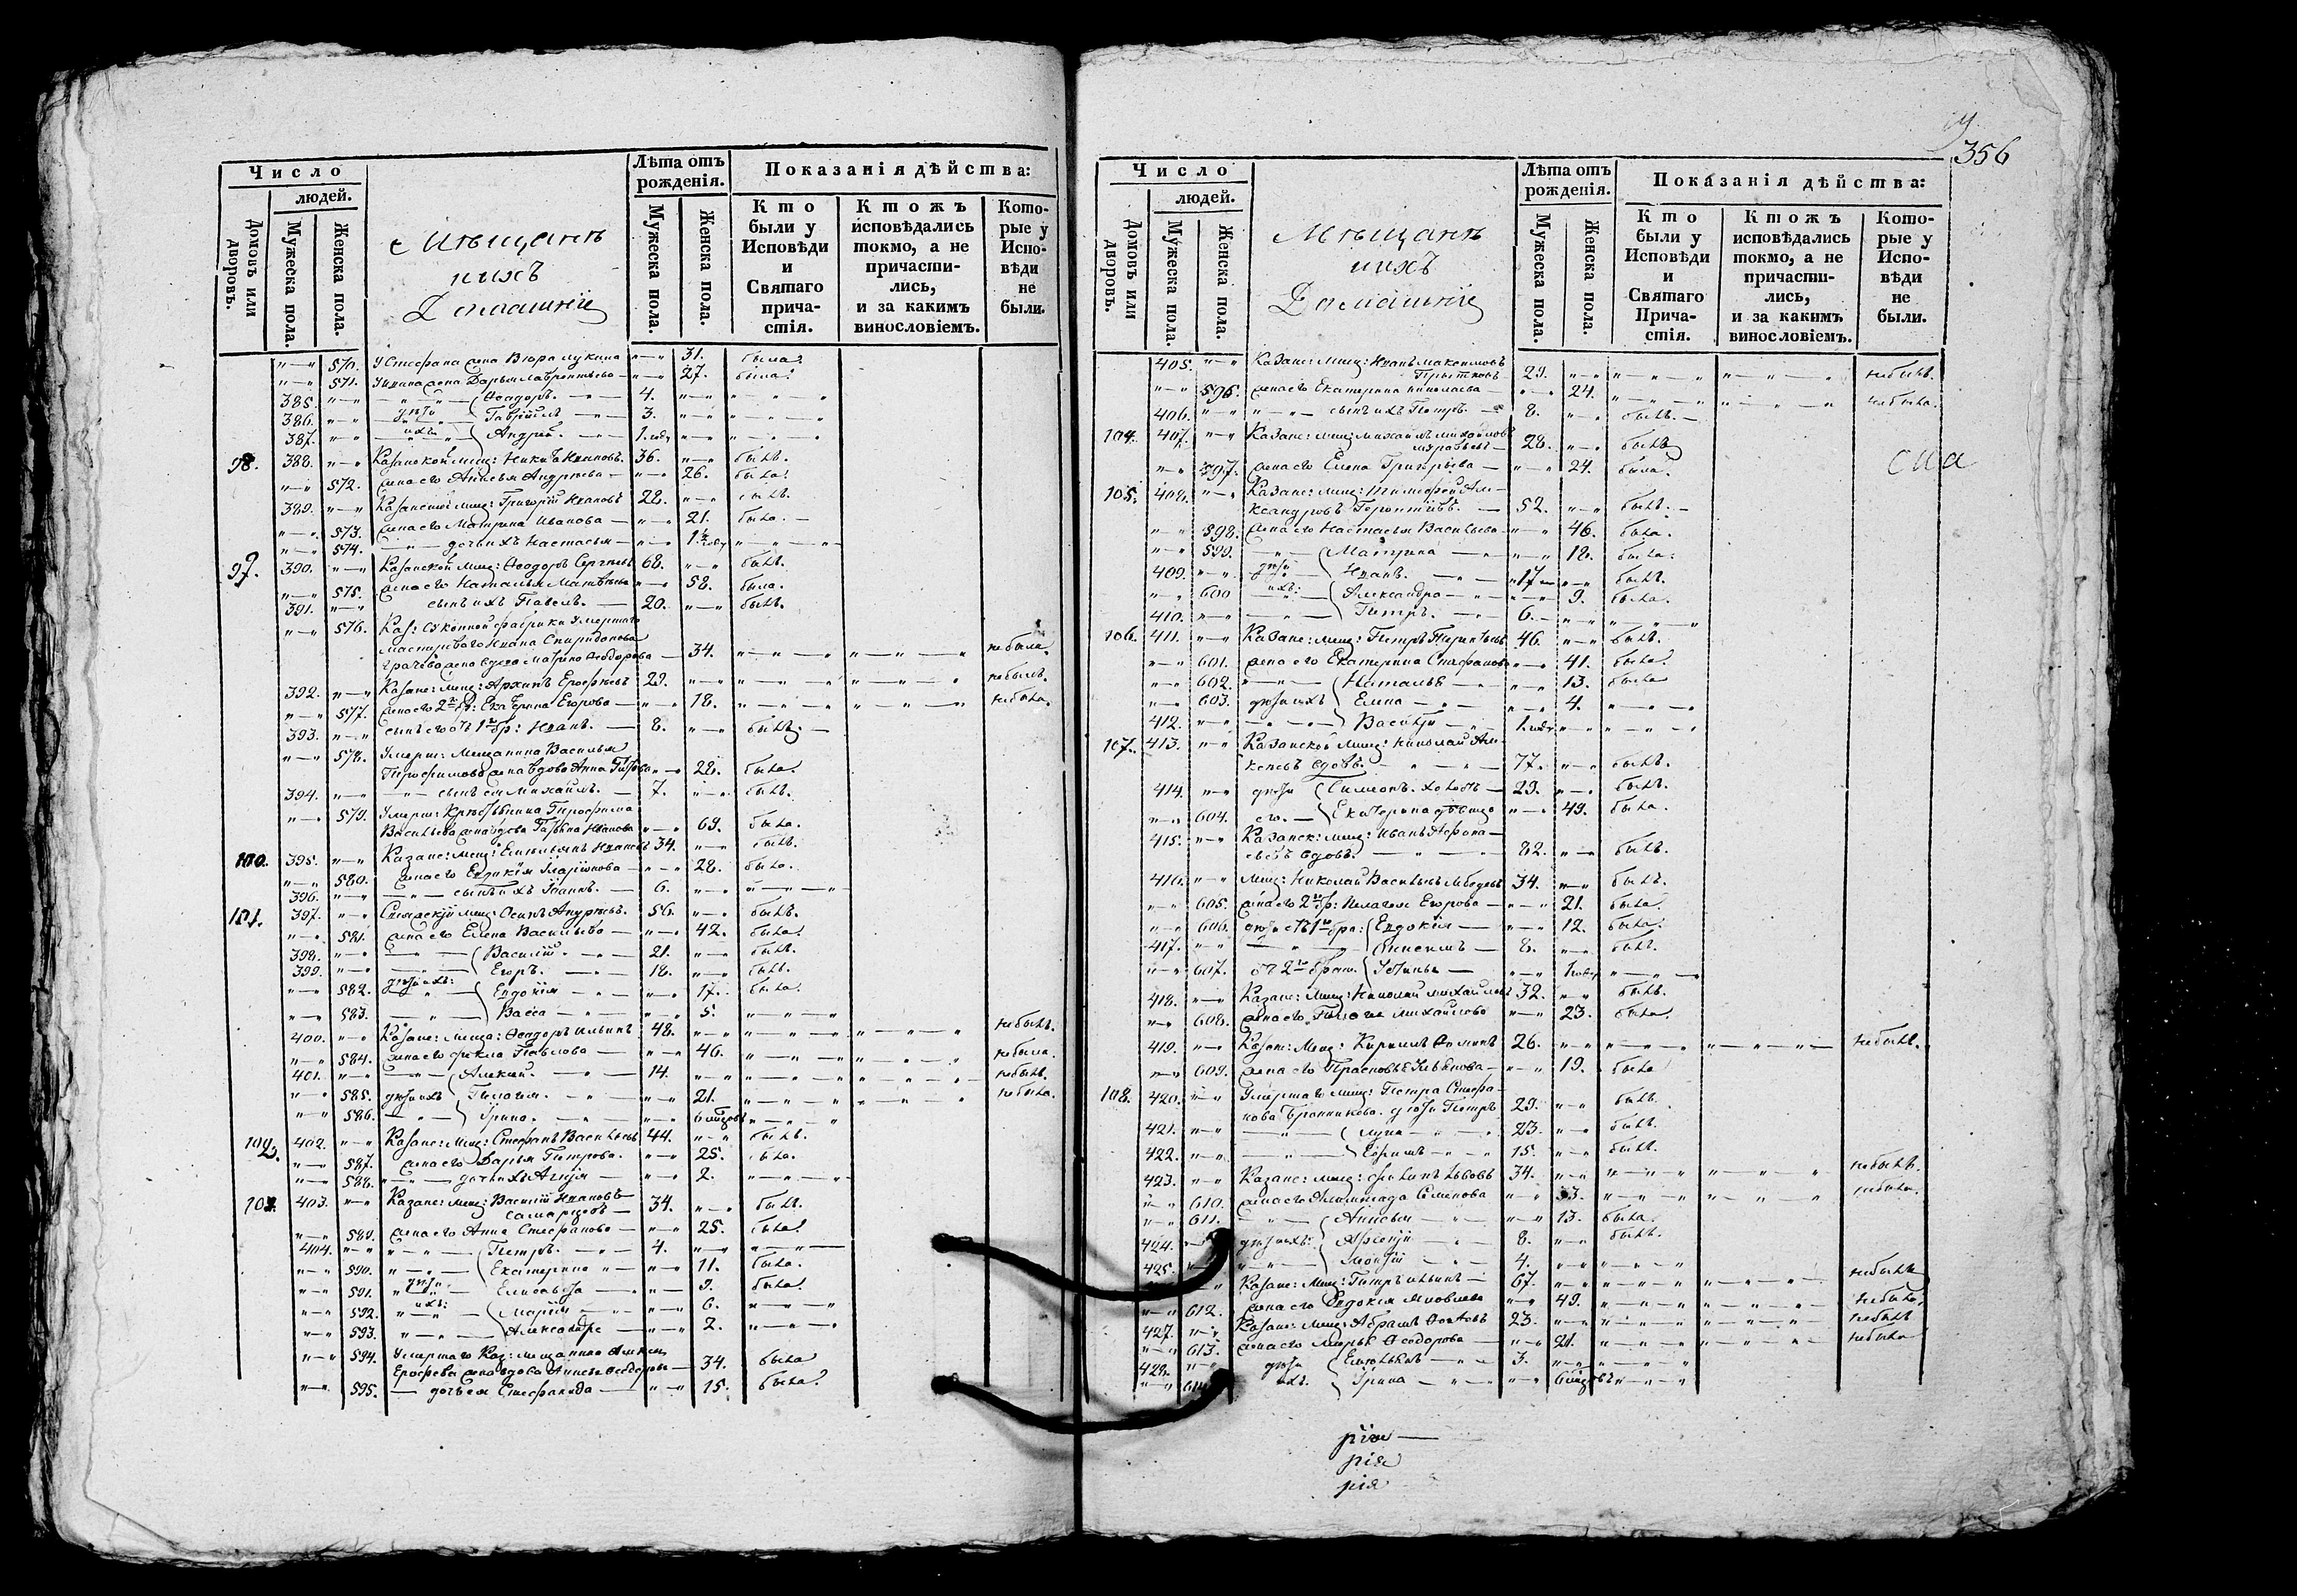 Число
людей.
Домовъ или дворовъ.
Мужеска пола.
Женска пола.
Мѣщане
и ихъ
Домашніе
Лѣта отъ рожденія.
Мужеска пола.
Женска пола.
Показанія дѣйства:
Кто были у Исповѣди и Святаго причастія.
Ктожъ исповѣдались токмо, а не причастились, и за какимъ винословіемъ.
Которые у Исповѣди не были.
570. У Стефана жена Вѣра Лукина 31. была.
571. жена Дарья Лаврентьева 27. была.
385. Ѳеодоръ. 4.
386. дѣти Гавріилъ 3.
387. ихъ Андрей. 1. году
98. 388. Казанской мещ: Никита Ивановъ. 36. былъ.
572. жена его Анисья Андреева 26. была.
389. Казанской мещ: Григорій Ивановъ 28. былъ.
573. жена его Матрина Иванова 21. была.
574. дочь ихъ Настасья
97. 390. Казанской мещ: Ѳеодоръ Сергѣевъ 68. былъ.
575. жена его Наталья Матвѣева 58. была.
391. сынъ ихъ Павелъ. 20. былъ.
576. Каз: Суконной фабрики умершаго
мастероваго Ивана Спиридонова
жена вдова Матрина Ѳеодорова 34. небыла.
392. Казанс: мещ: Архипъ Ерофѣевъ 29. небылъ.
577. жена его 2 бр: Екатерина Егорова 18. небыла.
393. сынъ его отъ 1 бр: Иванъ. 8. былъ.
578. Умерш: Мещанина Василья
жена вдова Анна 28. была.
394. сынъ ея Михайлъ. 7. былъ.
579. Умерш: Трофима
Васильева жена вдова Иванова 69. была.
100. 395. Казанс: мещ: Емельянъ Ивановъ 34. былъ.
580. жена его Евдокія Иларіонова 28. была.
396. сынъ ихъ Іоаннъ. 6.
101. 397. мещ: Осипъ Андреевъ. 56. былъ.
581. жена его Елена Васильева 42. была.
398. Василій 21. былъ.
399. Егоръ. 18. былъ.
582. дѣти ихъ: Евдокія 17. была.
583. Васса 5.
400. Казанс: меща: Ѳеодоръ Ильинъ 48. небылъ.
584. жена его Фекла Павлова 46. небыла.
401. Алексѣй. 14. небылъ.
585. дѣти ихъ Пелагея. 21. небыла.
586. Ирина.
102. 402. Казанс: Мещ: Стефанъ Васильевъ 44. былъ.
587. жена его Дарья Петрова. 25. была.
588. дочь ихъ 2.
103. 403. Казанс: мещ: Василій Ивановъ
34. былъ.
589. жена его Анна Стефанова 25. была.
404. Петръ. 4.
590. Екатерина 11. была.
591. дѣти Елисавета 9. была.
592. ихъ: Марія 6.
593. Александра 2.
594. Умершаго Каз: мещанина
Ерофеева жена вдова Анисья Ѳеодорова 34. была
595. дочь ея Стефанида 15. была.
356
Число
людей.
Домовъ или дворовъ.
Мужеска пола.
Женска пола.
Мѣщане
и ихъ
Домашніе
Лѣта отъ рожденія.
Мужеска пола.
Женска пола.
Показанія дѣйства:
Кто были у Исповѣди и Святаго Причастія.
Ктожъ исповѣдались токмо, а не причастились, и за какимъ винословіемъ.
Которые у Исповѣди не были.
405. Казанс: Мещ: Иванъ Максимовъ
29. небылъ.
596. жена его Екатерина Николаева 24. небыла.
406. сынъ ихъ Петръ. 8. былъ.
104. 407. Казанс: мещ: Михайлъ Михайловъ
28. былъ
597. жена его Елена Григорьева 24. была.
105. 408. Казанс: мещ: Тимофей Але-
ксандровъ 52. былъ.
598. жена его Настасья Васильева 46. была.
599. Матрина 18. была.
409. дѣти Иванъ. 17 былъ.
600 ихъ: Александра 9. была.
410. Петръ. 6.
106. 411. Казанс: мещ: Петръ 46. былъ.
601. жена его Екатерина Стефанова 41. была.
602. Наталья 13. была
603. дѣти ихъ Елена 4.
412. Василій 1. году
107. 413. Казанской мещ: Николай Але-
ксѣевъ вдовъ. 77. былъ.
414. дѣти Симеонъ. холостъ 29. былъ.
604. его. Екатерина дѣвица 49. была.
415. Казанск: мещ: Иванъ Афона-
сьевъ вдовъ. 82. былъ.
416. мещ: Николай Васильевъ Лебедевъ 34. былъ.
605. жена его 2 бр: Пелагея Егорова 21. была.
606. дѣти отъ 1 бра: Евдокія 12. была.
417. 8. былъ.
607. отъ 2 брач. Устинья 1 году
418. Казанс: мещ: Николай Михайловъ 32. былъ.
608. жена его Пелагея Михайлова 23. была.
419. Казан: Мещ: Кириллъ Ѳоминъ 26. небылъ.
609. жена его Прасковья 19. была
108. 420. Умершаго мещ: Петра Стефа-
нова Бронникова. дѣти Петръ 29. былъ.
421. Лука 23. былъ.
422. Ефимъ 15. былъ.
423. Казанс: мещ: Львовъ 34. небылъ.
610. жена его Семенова 33. небыла.
611. Анисья 13. была.
424. дѣти ихъ: Арсеній 8. былъ.
425. Моисій 4.
Казанс: мещ: Петръ Ильинъ 67. небылъ
612. жена его Евдокія Яковлева 49. небыла.
427. Казанс: мещ: Абрамъ 23. небылъ
613. жена его Марья Ѳеодорова 21. небыла
428. дѣти 3.
ихъ. Ирина
рія
рія
рія